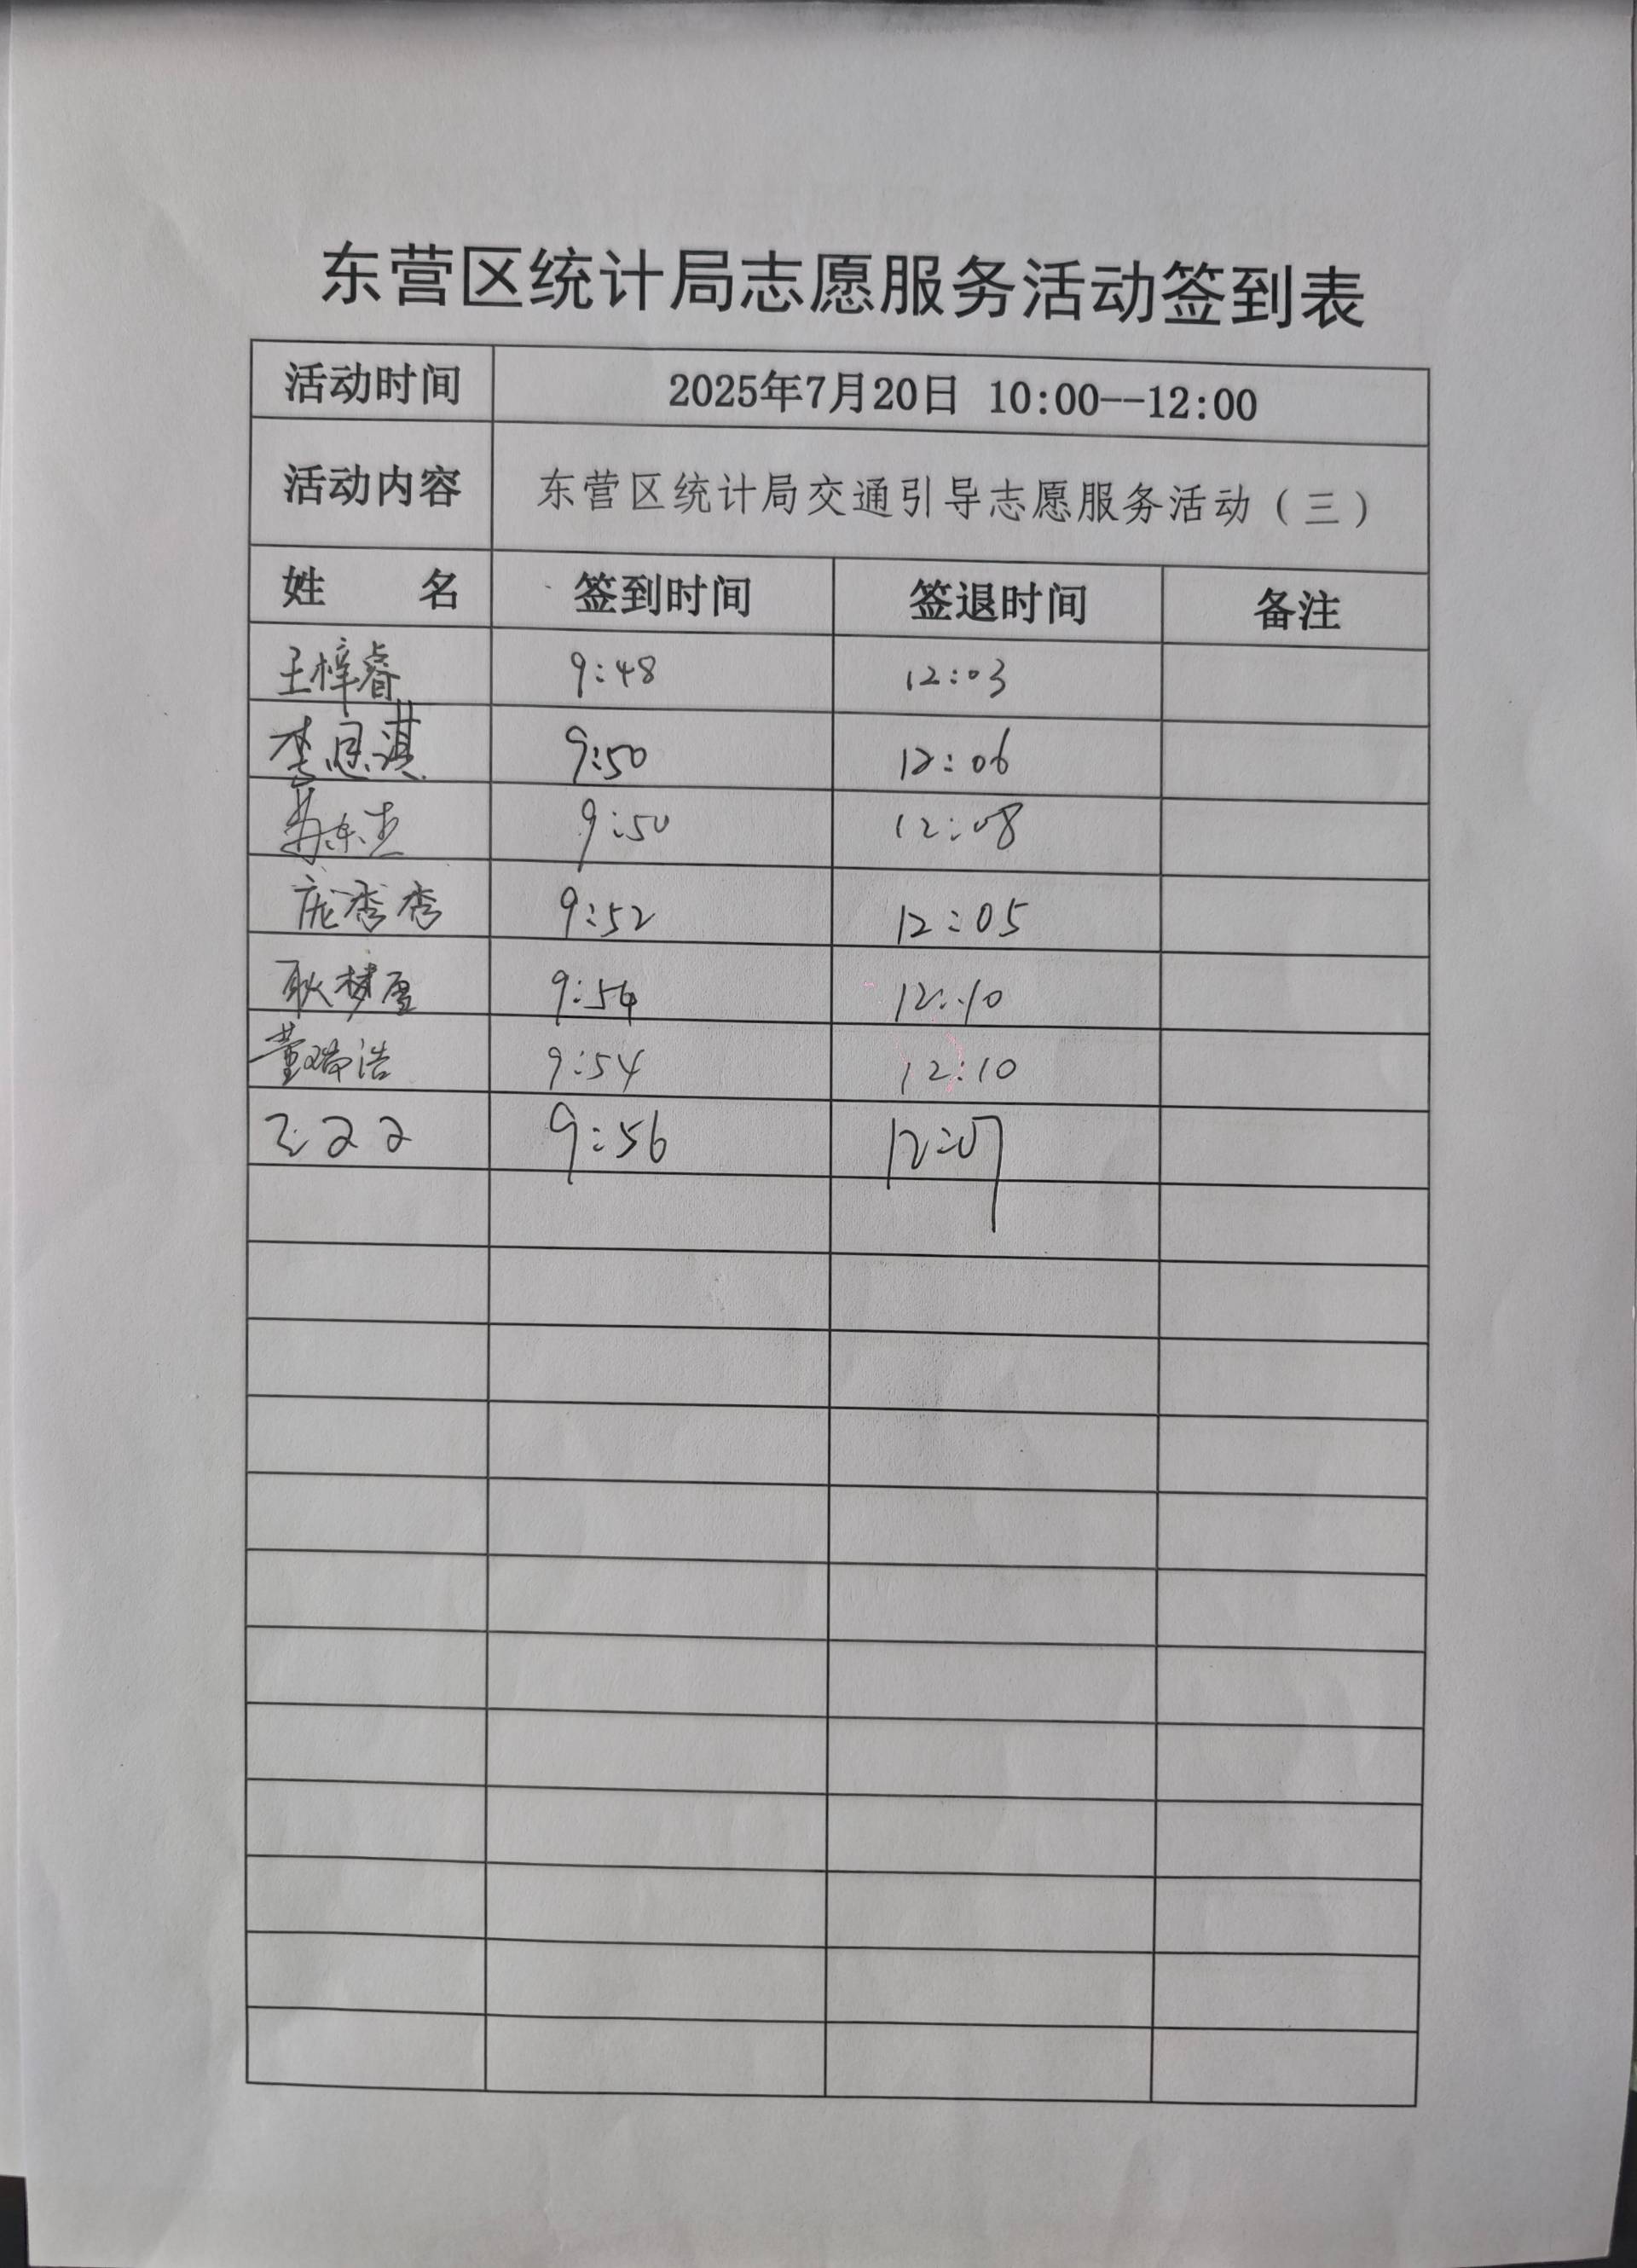 东营区统计局志愿服务活动签到表
活动时间 2025年7月20日 10:00--12:00
活动内容 东营区统计局交通引导志愿服务活动（三）
姓 名 签到时间 签退时间 备注
王梓睿 9:48 12:03
李思淇 9:50 12:06
苏东杰 9:50 12:08
庞秀秀 9:52 12:05
耿梦 9:54 12:10
董瑞浩 9:54 12:10
9:56 12:07